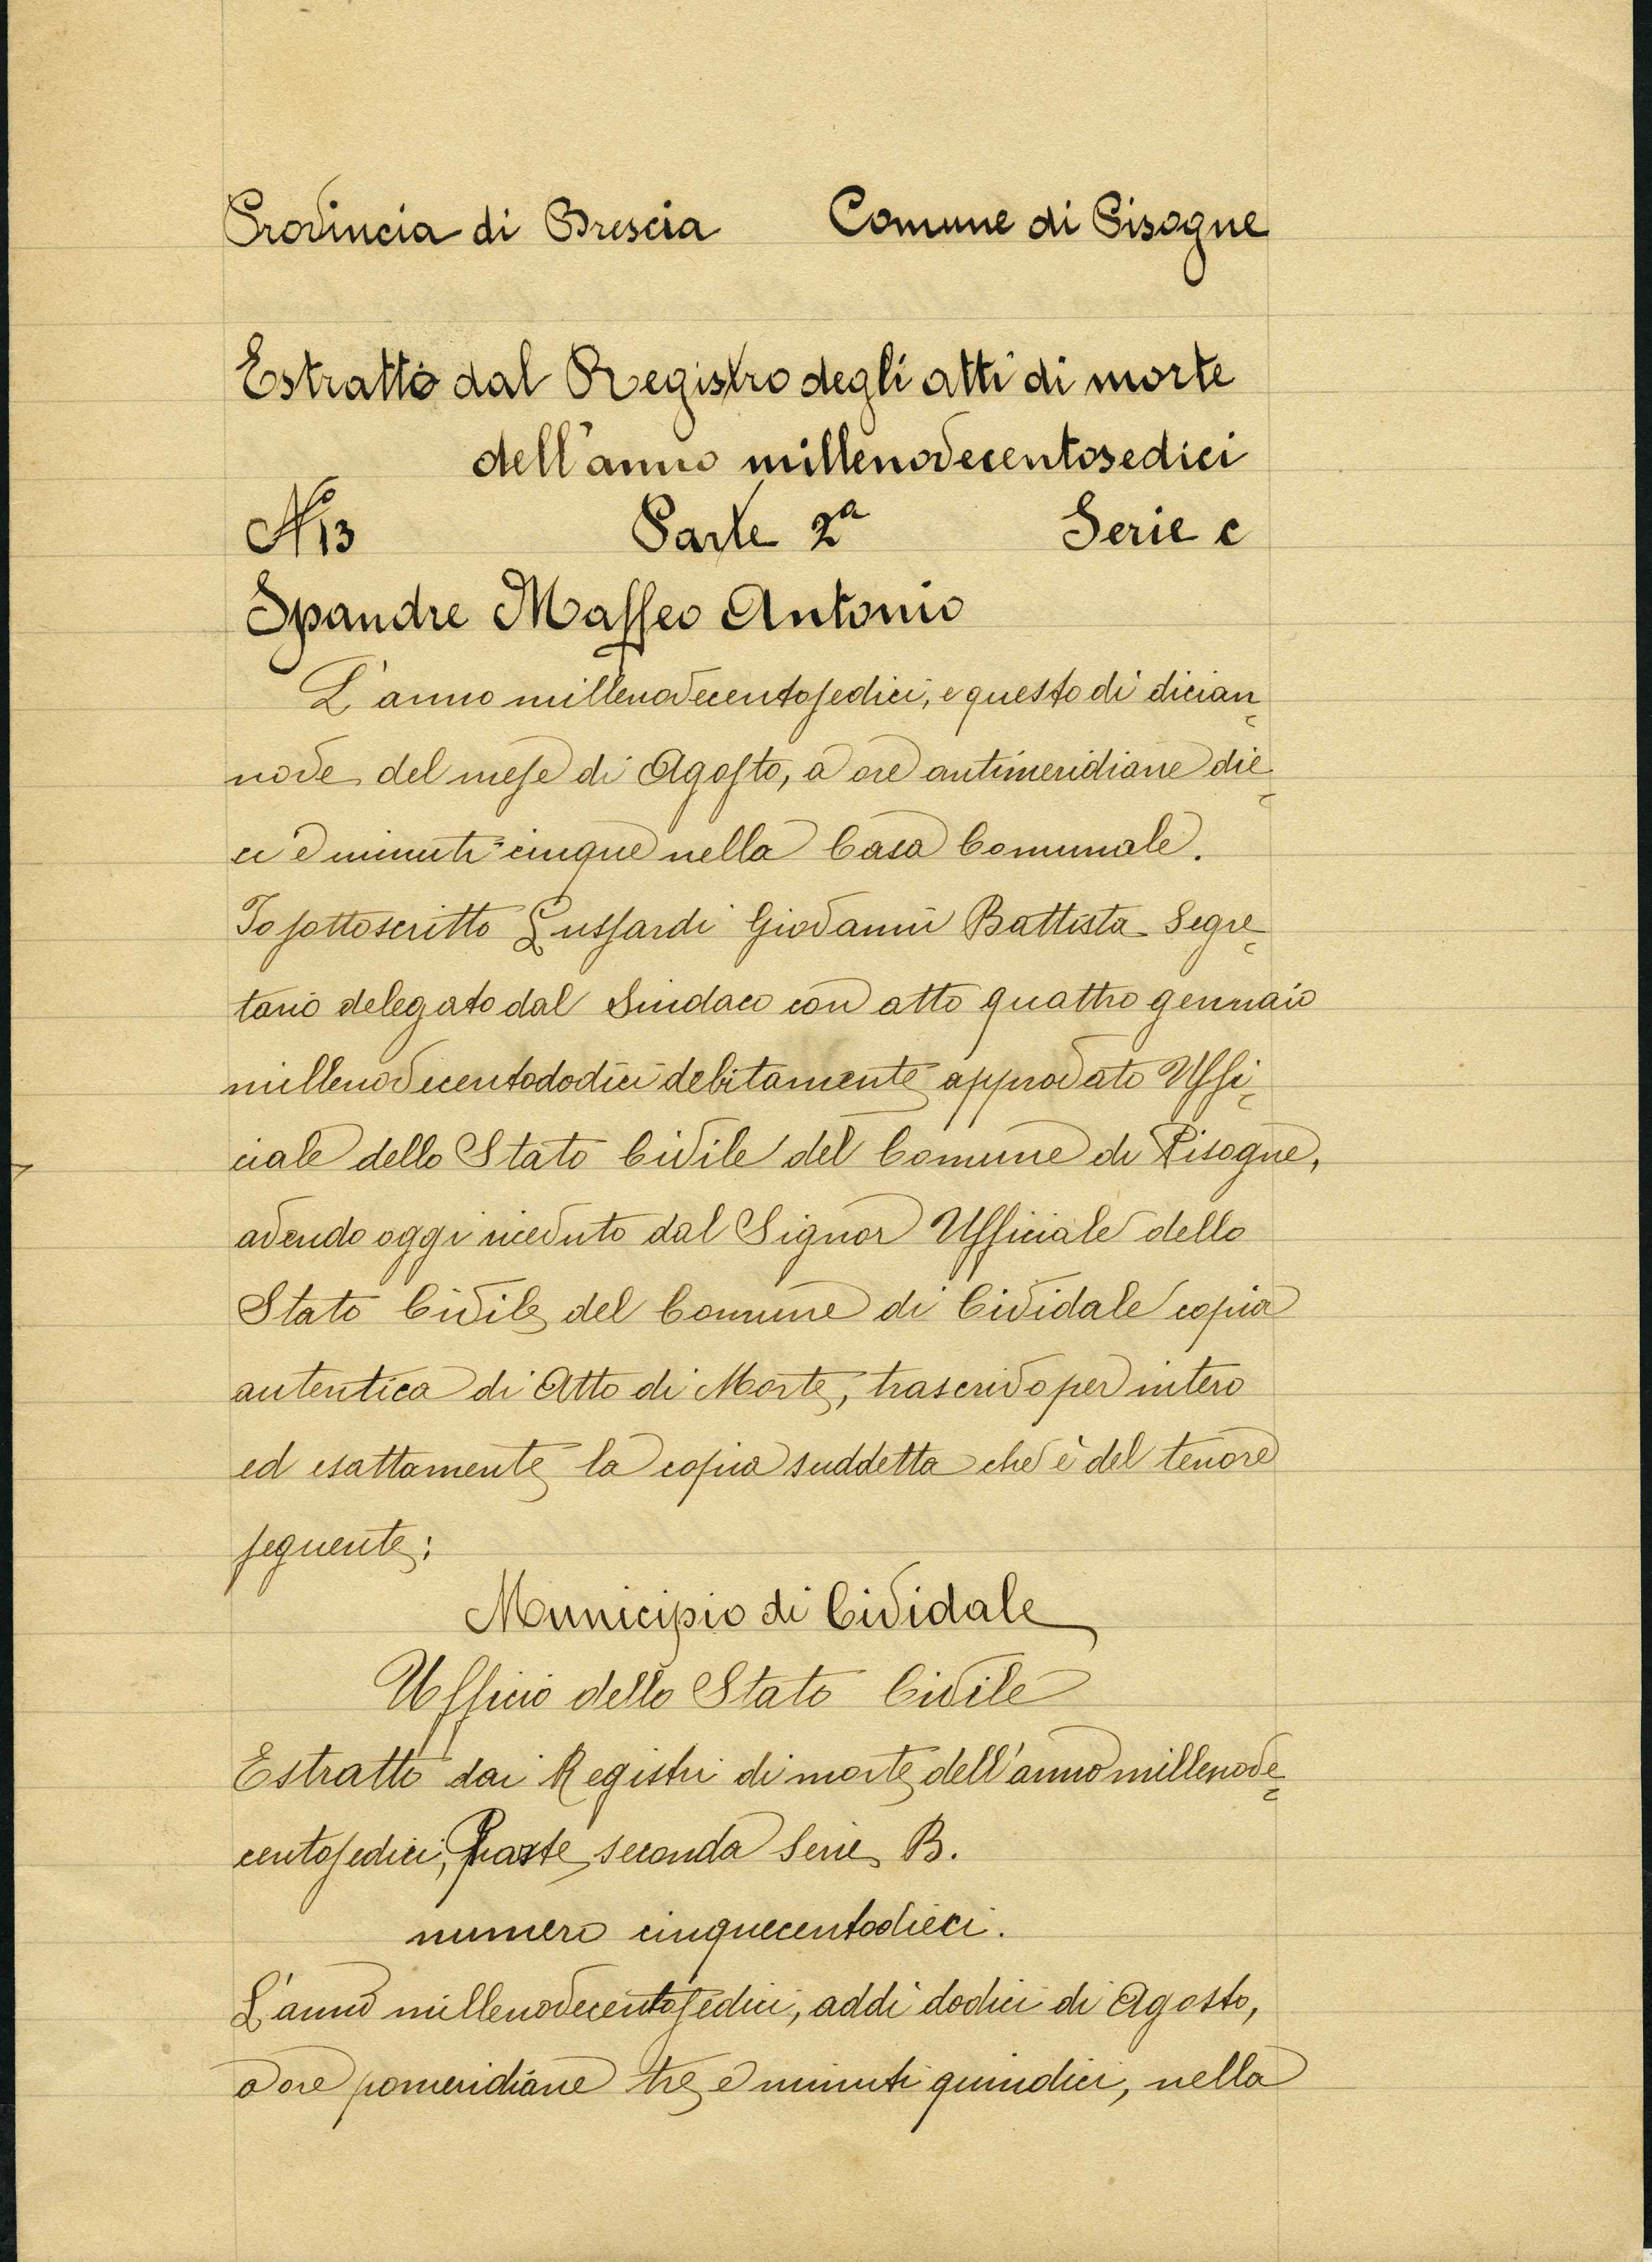 Provincia di Brescia Comune di Pisogne
Estratto dal Registro degli atti di morte
dell'anno millenovecentosedici
N° 13 Parte 2ª Serie c
Spandre Maffeo Antonio
L'anno millenovecentosedici, e questo di dician=
nove del mese di Agosto, a ore antimeridiane die=
ci e minuti cinque nella Casa Comunale.
Io sottoscritto Lussardi Giovanni Battista Segre=
tario delegato dal Sindaco con atto quattro gennaio
millenovecentododici debitamente approvato Uffi=
ciale dello Stato Civile del Comune di Pisogne,
avendo oggi ricevuto dal Signor Ufficiale dello
Stato Civile del Comune di Cividale copia
autentica di Atto di Morte, trascrivo per intero
ed esattamente la copia suddetta che è del tenore
seguente:
Municipio di Cividale
Ufficio dello Stato Civile
Estratto dai Registri di morte dell'anno millenove=
centosedici, Parte seconda Serie B.
numero cinquecentodieci.
L'anno millenovecentosedici, addì dodici di Agosto,
a ore pomeridiane tre e minuti quindici, nella